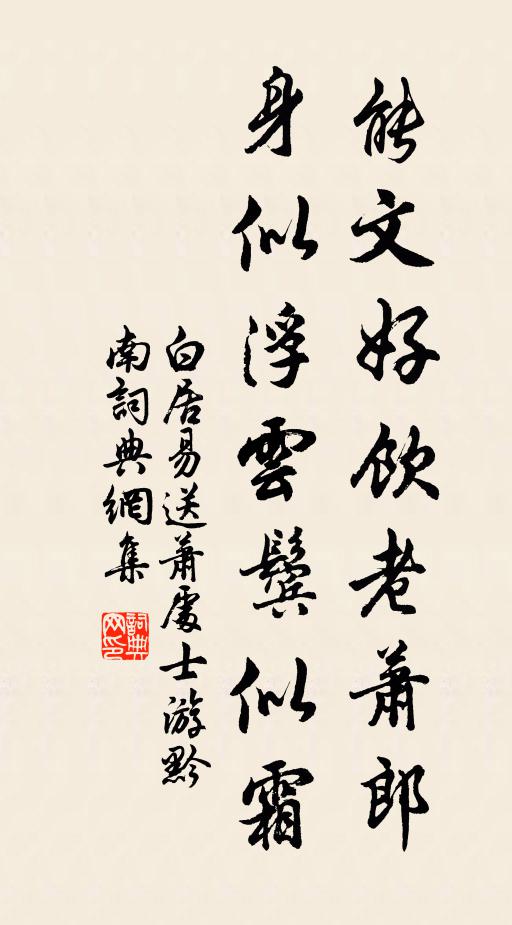 能文好飲老蕭郎
身似浮雲鬢似霜
白居易送蕭處士游黔
南詞典網集
詞典
网印